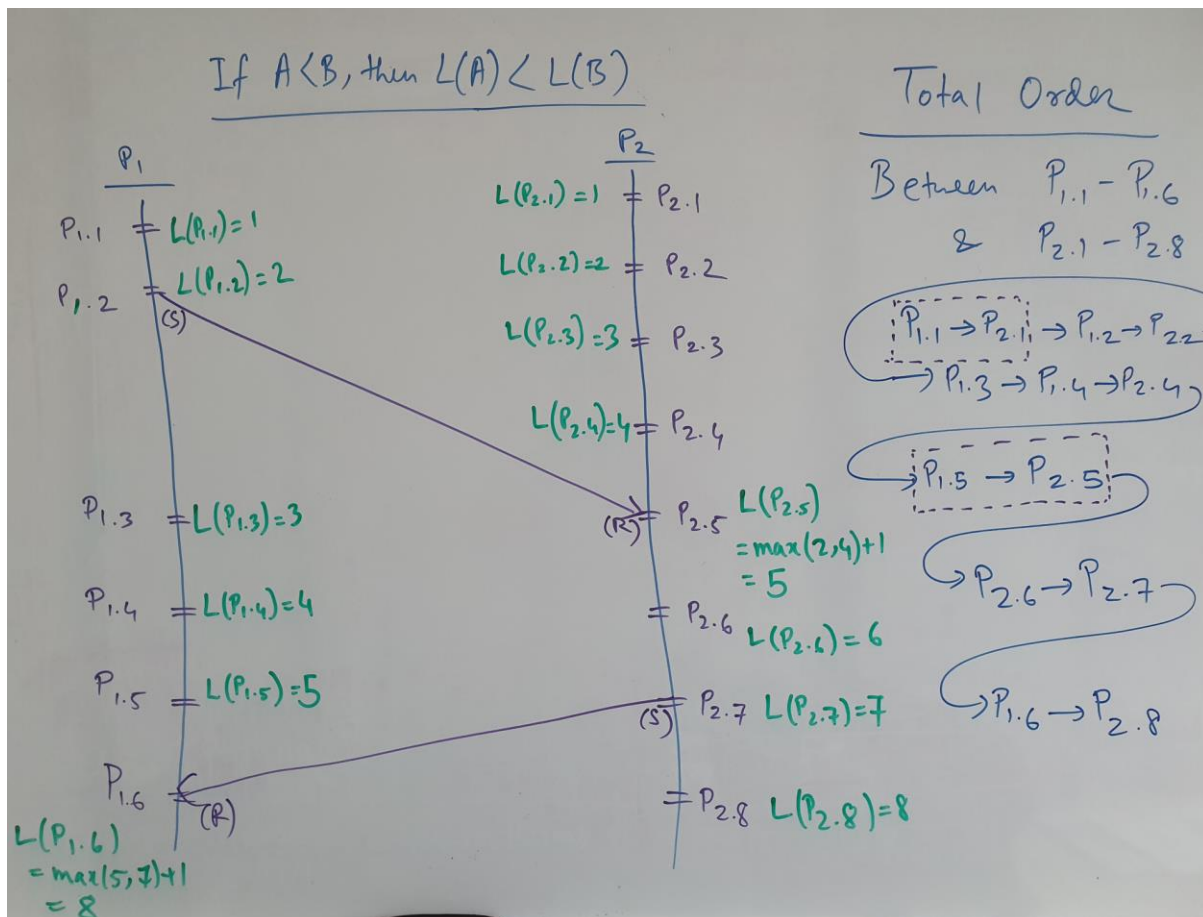 If A<B, then L(A) < L(B)
P₁
P₁.₁ L(P₁.₁)=1
P₁.₂ L(P₁.₂)=2
(S)
P₁.₃ L(P₁.₃)=3
P₁.₄ L(P₁.₄)=4
P₁.₅ L(P₁.₅)=5
P₁.₆
(R)
L(P₁.₆)
=max(5,7)+1
= 8
P₂
L(P₂.₁)=1 P₂.₁
L(P₂.₂)=2 P₂.₂
L(P₂.₃)=3 P₂.₃
L(P₂.₄)=4 P₂.₄
(R) P₂.₅ L(P₂.₅)
=max(2,4)+1
= 5
P₂.₆ L(P₂.₆) = 6
(S) P₂.₇ L(P₂.₇)=7
P₂.₈ L(P₂.₈)=8
Total Order
Between P₁.₁ - P₁.₆
& P₂.₁ - P₂.₈
P₁.₁ → P₂.₁ → P₁.₂ → P₂.₂
→ P₁.₃ → P₁.₄ → P₂.₄
→ P₁.₅ → P₂.₅
→ P₂.₆ → P₂.₇
→ P₁.₆ → P₂.₈